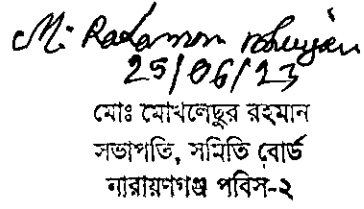 M. Rahaman Bhuyan
25/06/23
মোঃ মোখলেছুর রহমান
সভাপতি, সমিতি বোর্ড
নারায়ণগঞ্জ পবিস-২